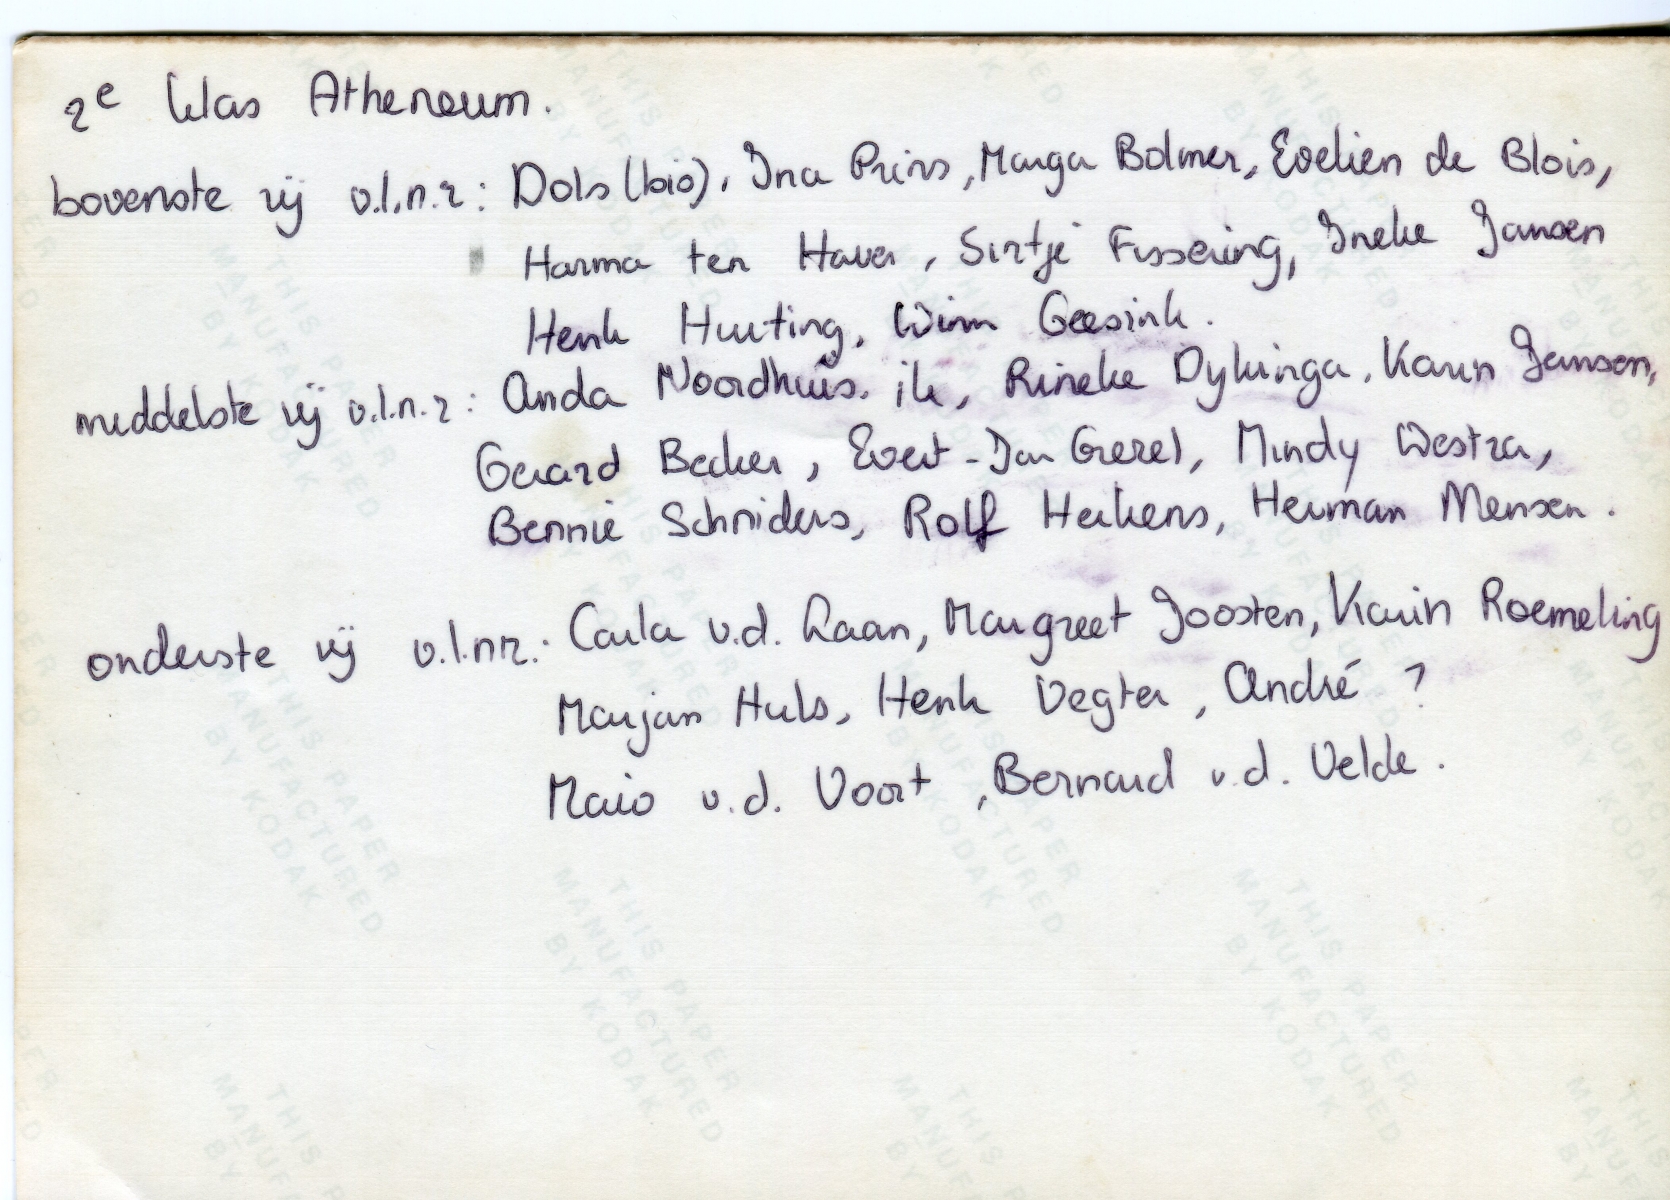 2e klas Atheneum.
bovenste rij v.l.n.r: Dols (bio), Ina Prins, Marga Bolmer, Evelien de Blois,
Harma ten Haver, Sietje Fissering, Ineke Jansen
Henk Hurting, Wim Geesink.
middelste rij v.l.n.r: Anda Noordhuis, ik, Rineke Dykinga, Karin Jansen,
Gerard Becker, Evert-Jan Gezel, Mindy Westra,
Bennie Schniders, Rolf Heikens, Herman Mensen.
onderste rij v.l.n.r.: Carla v.d. Laan, Margreet Joosten, Karin Roemeling
Marjan Huls, Henk Vegter, André ?
Mario v.d. Voort, Bernard v.d. Velde.
THIS PAPER
MANUFACTURED
BY KODAK